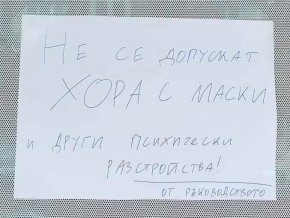 НЕ СЕ ДОПУСКАТ
ХОРА С МАСКИ
И ДРУГИ ПСИХИЧЕСКИ
РАЗСТРОЙСТВА!
ОТ РЪКОВОДСТВОТО